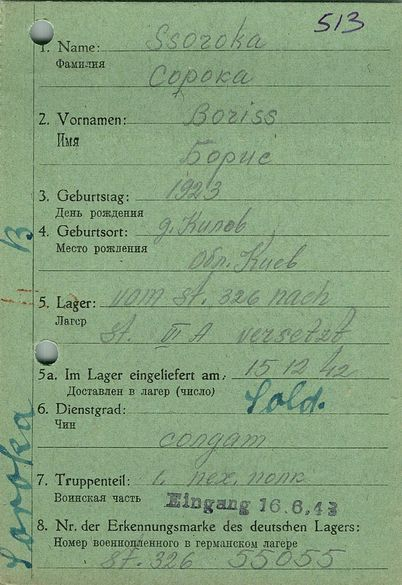 513
1. Name: Ssoroka
Фамилия Сорока
2. Vornamen: Boriss
Имя Борис
3. Geburtstag: 1923
День рождения
4. Geburtsort: д. Килов
Место рождения Обл. Киев
5. Lager: vom St. 326 nach
Лагер St. VI A versetzt
5a. Im Lager eingeliefert am: 15 12 42
Доставлен в лагер (число)
6. Dienstgrad: Sold.
Чин солдат
7. Truppenteil: 1. пех. полк
Воинская часть Eingang 16.6.43
8. Nr. der Erkennungsmarke des deutschen Lagers:
Номер военнопленного в германском лагере
St. 326 55055
Soroka B